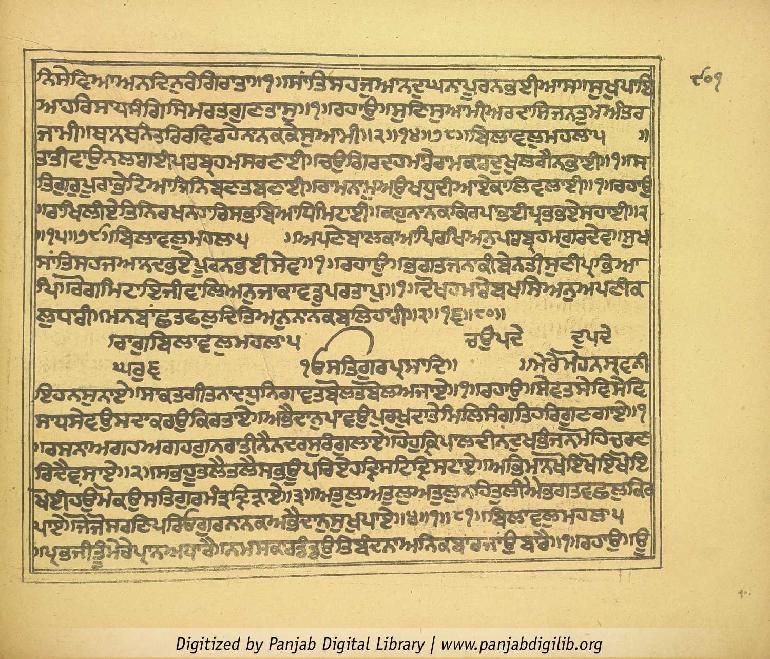 ਨਿ ਸੇਵਿਆ ਅਨਦਿਨੁ ਰੰਗਿ ਰਾਤਾ ॥੧॥ ਸਾਂਤਿ ਸਹਜ ਆਨਦ ਘਨਾ ਪੂਰਨ ਭਈ ਆਸ ॥ ਸੁਖੁ ਪਾਇ
ਆ ਹਰਿ ਸਾਧਸੰਗਿ ਸਿਮਰਤ ਗੁਣਤਾਸ ॥੧॥ ਰਹਾਉ ॥ ਸੁਣਿ ਸੁਆਮੀ ਅਰਦਾਸਿ ਜਨ ਤੁਮ ਅੰਤਰ
ਜਾਮੀ ॥ ਥਾਨ ਥਨੰਤਰਿ ਰਵਿ ਰਹੇ ਨਾਨਕ ਕੇ ਸੁਆਮੀ ॥੨॥੧੪॥੭੮॥ ਬਿਲਾਵਲੁ ਮਹਲਾ ੫ ॥
ਤਾਤੀ ਵਾਉ ਨ ਲਗਈ ਪਾਰਬ੍ਰਹਮ ਸਰਣਾਈ ॥ ਚਉਗਿਰਦ ਹਮਾਰੈ ਰਾਮ ਕਾਰ ਦੁਖੁ ਲਗੈ ਨ ਭਾਈ ॥੧॥ ਸ
ਤਿਗੁਰੁ ਪੂਰਾ ਭੇਟਿਆ ਜਿਨਿ ਬਣਤ ਬਣਾਈ ॥ ਰਾਮ ਨਾਮੁ ਅਉਖਧੁ ਦੀਆ ਏਕਾ ਲਿਵ ਲਾਈ ॥੧॥ ਰਹਾਉ
॥ ਰਾਖਿ ਲੀਏ ਤਿਨਿ ਰਖਨਹਾਰਿ ਸਭ ਬਿਆਧਿ ਮਿਟਾਈ ॥ ਕਹੁ ਨਾਨਕ ਕਿਰਪਾ ਭਈ ਪ੍ਰਭ ਭਏ ਸਹਾਈ ॥੨
॥੧੫॥੭੯॥ ਬਿਲਾਵਲੁ ਮਹਲਾ ੫ ॥ ਅਪਣੇ ਬਾਲਕ ਆਪਿ ਰਖਿਅਨੁ ਪਾਰਬ੍ਰਹਮ ਗੁਰਦੇਵ ॥ ਸੁਖ
ਸਾਂਤਿ ਸਹਜ ਆਨਦ ਭਏ ਪੂਰਨ ਭਈ ਸੇਵ ॥੧॥ ਰਹਾਉ ॥ ਭਗਤ ਜਨਾ ਕੀ ਬੇਨਤੀ ਸੁਣੀ ਪ੍ਰਭਿ ਆ
ਪਿ ॥ ਰੋਗ ਮਿਟਾਇ ਜੀਵਾਲਿਅਨੁ ਜਾ ਕਾ ਵਡ ਪਰਤਾਪੁ ॥੧॥ ਦੋਖ ਹਮਾਰੇ ਬਖਸਿਅਨੁ ਅਪਣੀ ਕ
ਲ ਧਾਰੀ ॥ ਮਨ ਬਾਂਛਤ ਫਲ ਦਿਤਿਅਨੁ ਨਾਨਕ ਬਲਿਹਾਰੀ ॥੨॥੧੬॥੮੦॥
ਰਾਗੁ ਬਿਲਾਵਲੁ ਮਹਲਾ ੫ ਚਉਪਦੇ ਦੁਪਦੇ
ਘਰੁ ੬ ੴ ਸਤਿਗੁਰ ਪ੍ਰਸਾਦਿ ॥ ॥ ਮੇਰੇ ਮੋਹਨ ਸ੍ਰਵਨੀ
ਇਹ ਨ ਸੁਨਾਏ ॥ ਸਾਕਤ ਗੀਤ ਨਾਦ ਧੁਨਿ ਗਾਵਤ ਬੋਲਤ ਬੋਲ ਅਜਾਏ ॥੧॥ ਰਹਾਉ ॥ ਸੇਵਤ ਸੇਵਿ ਸੇਵਿ
ਸਾਧ ਸੇਵਉ ਸਦਾ ਕਰਉ ਕਿਰਤਾਏ ॥ ਅਭੈ ਦਾਨੁ ਪਾਵਉ ਪੁਰਖ ਦਾਤੇ ਮਿਲਿ ਸੰਗਤਿ ਹਰਿ ਗੁਣ ਗਾਏ ॥੧
॥ ਰਸਨਾ ਅਗਹ ਅਗਹ ਗੁਨ ਰਾਤੀ ਨੈਨ ਦਰਸ ਰੰਗੁ ਲਾਏ ॥ ਹੋਹੁ ਕ੍ਰਿਪਾਲ ਦੀਨ ਦੁਖ ਭੰਜਨ ਮੋਹਿ ਚਰਣ
ਰਿਦੈ ਵਸਾਏ ॥੨॥ ਸਭਹੂ ਤਲੈ ਤਲੈ ਸਭ ਊਪਰਿ ਏਹ ਦ੍ਰਿਸਟਿ ਦ੍ਰਿਸਟਾਏ ॥ ਅਭਿਮਾਨੁ ਖੋਇ ਖੋਇ ਖੋਇ
ਖੋਈ ਹਉ ਮੋ ਕਉ ਸਤਿਗੁਰ ਮੰਤ੍ਰੁ ਦ੍ਰਿੜਾਏ ॥੩॥ ਅਤੁਲੁ ਅਤੁਲੁ ਅਤੁਲੁ ਨਹ ਤੁਲੀਐ ਭਗਤਿ ਵਛਲੁ ਕਿਰ
ਪਾਏ ॥ ਜੋ ਜੋ ਸਰਣਿ ਪਰਿਓ ਗੁਰ ਨਾਨਕ ਅਭੈ ਦਾਨੁ ਸੁਖ ਪਾਏ ॥੪॥੧॥੮੧॥ ਬਿਲਾਵਲੁ ਮਹਲਾ ੫
॥ ਪ੍ਰਭ ਜੀ ਤੂ ਮੇਰੇ ਪ੍ਰਾਨ ਅਧਾਰੈ ॥ ਨਮਸਕਾਰ ਡੰਡਉਤਿ ਬੰਦਨਾ ਅਨਿਕ ਬਾਰ ਜਾਉ ਬਾਰੈ ॥੧॥ ਰਹਾਉ ॥ ਊ
Digitized by Panjab Digital Library | www.panjabdigilib.org